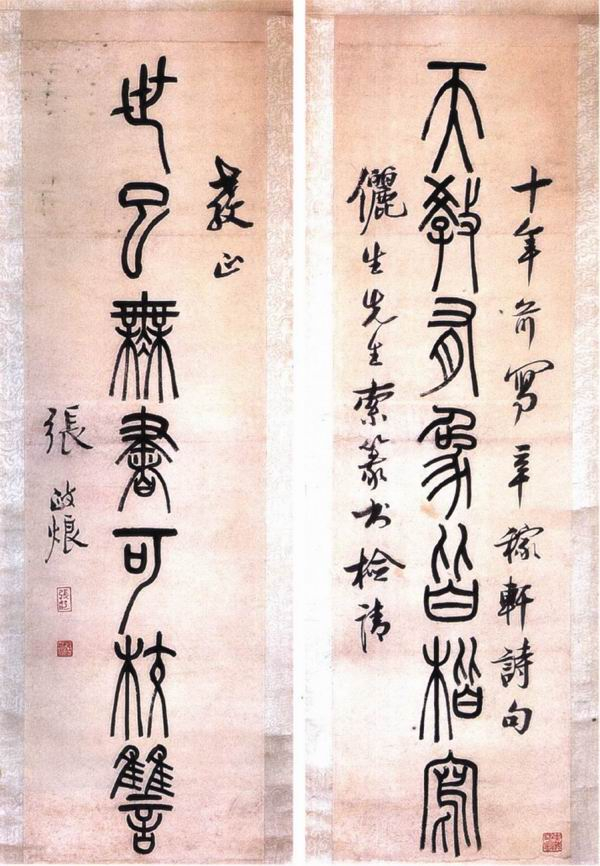 十年前寫辛稼軒詩句
天教有象皆楷寫
儷生先生索篆书檢請
教正
世已無書可校讎
張政烺